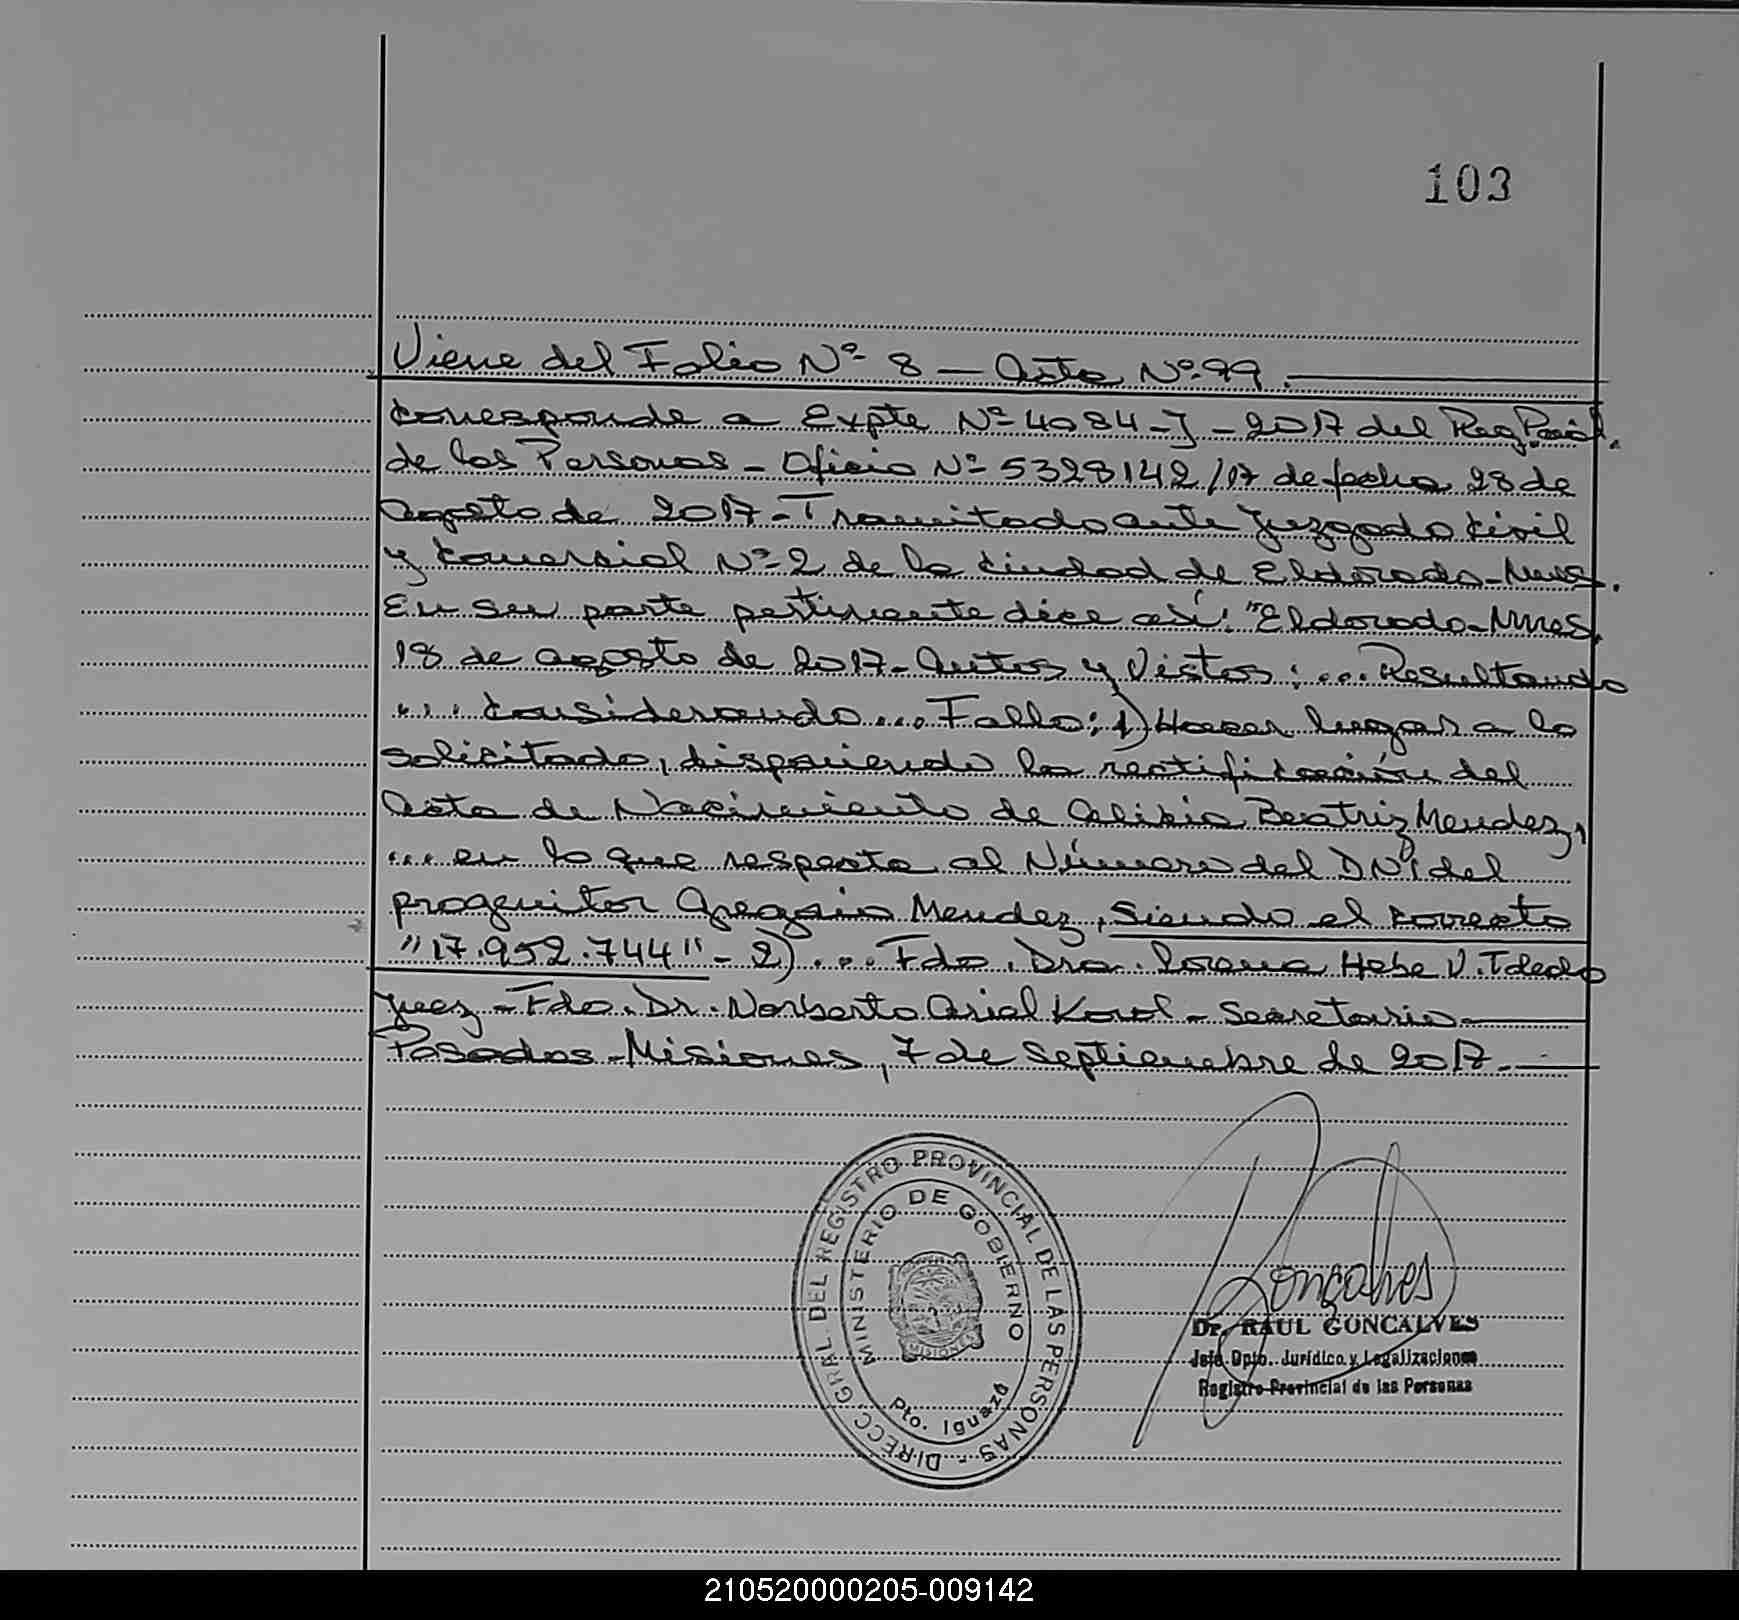 103
Viene del Folio Nº 8 — Acta Nº 99.
Corresponde a Expte Nº 4084-J-2017 del Reg. Pcial.
de las Personas - Oficio Nº 5328142/17 de fecha 28 de
Agosto de 2017 - Tramitado ante Juzgado Civil
y Comercial Nº 2 de la Ciudad de Eldorado - Mnes.
En su parte pertinente dice así: "Eldorado - Mnes,
18 de agosto de 2017 - Autos y Vistos: ... Resultando
.... Considerando ... Fallo: 1) Hacer lugar a lo
solicitado, disponiendo la rectificación del
Acta de Nacimiento de Beatriz Mendez,
... en lo que respecta al Número del DNI del
progenitor Gregorio Mendez, siendo el correcto
"17.952.744" - 2) ... Fdo. Dra. Lorena Hebe V. Toledo
Juez - Fdo. Dr. Norberto Ariel Korol - Secretario
Posadas - Misiones, 7 de Septiembre de 2017.
DIRECC GRAL DEL REGISTRO PROVINCIAL DE LAS PERSONAS -
MINISTERIO DE GOBIERNO
MISIONES
Pto. Iguazú
Goncalves
Dr. RAUL GONCALVES
Jefe Dpto. Jurídico y Legalizaciones
Registro Provincial de las Personas
210520000205-009142